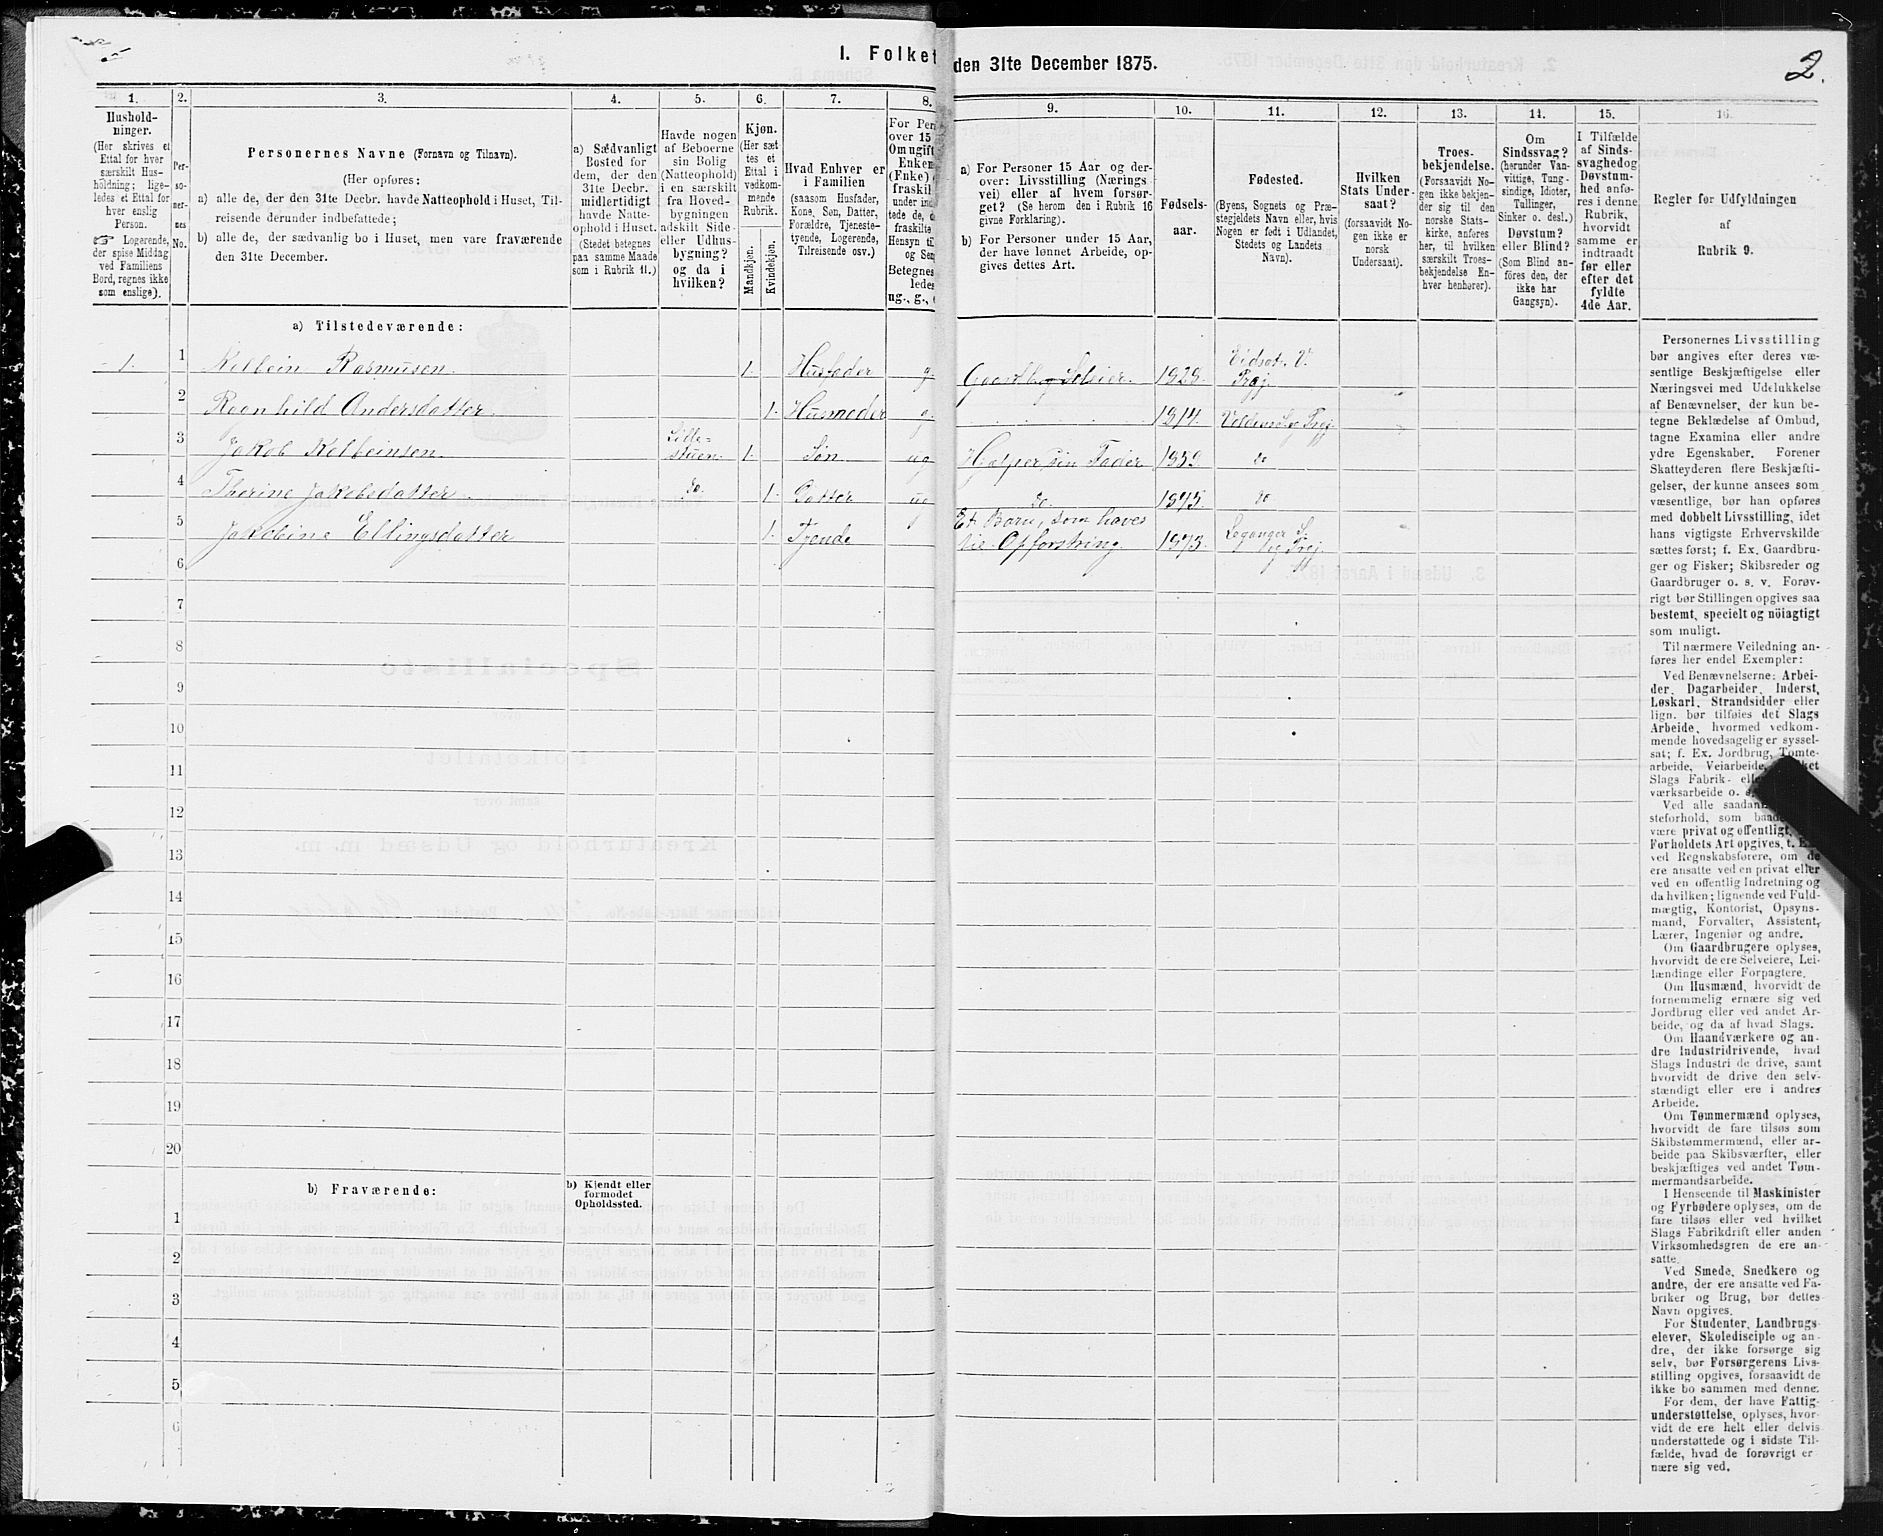 I. Folket
den 31te December 1875.
2.
1.
2.
3.
4.
5.
6.
7.
8.
9.
10.
11.
12.
13.
14.
15.
16.
Hushold-
ninger.
(Her skrives et
Ettal for hver
særskilt Hus-
holdning; lige-
ledes et Ettal for
hver enslig
Person.
☞ Logerende,
der spise Middag
ved Familiens
Bord, regnes ikke
som enslige).
Per-
so-
ner-
nes
No.
Personernes Navne (Fornavn og Tilnavn).
(Her opføres:
a) alle de, der den 31te Decbr. havde Natteophold i Huset, Til-
reisende derunder indbefattede;
b) alle de, der sædvanlig bo i Huset, men vare fraværende
den 31te December.
a) Sædvanligt
Bosted for
dem, der den
31te Decbr.
midlertidigt
havde Natte-
ophold i Huset.
(Stedet betegnes
paa samme Maade
som i Rubrik 11.)
Havde nogen
af Beboerne
sin Bolig
(Natteophold)
i en særskilt
fra Hoved-
bygningen
adskilt Side-
eller Udhus-
bygning?
og da i
hvilken?
Kjøn.
(Her sæt
tes et
Ettal i
vedkom-
mende
Rubrik.
Mandkjøn.
Kvindekjøn.
Hvad Enhver er
i Familien
(saasom Husfader,
Kone, Søn, Datter,
Forældre, Tjeneste-
tyende, Logerende,
Tilreisende osv.)
For Per
over 15
Om ugift
Enkem
(Enke)
fraskil
under ind
tede de, d
fraskilte
Hensyn til
og Sen
Betegnes
ledes
ug., g.,
a) For Personer 15 Aar og der-
over: Livsstilling (Nærings
vei) eller af hvem forsør-
get? (Se herom den i Rubrik 16
givne Forklaring).
b) For Personer under 15 Aar,
der have lønnet Arbeide, op-
gives dettes Art.
Fødsels-
aar.
Fødested.
(Byens, Sognets og Præ-
stegjeldets Navn eller, hvis
Nogen er født i Udlandet,
Stedets og Landets
Navn).
Hvilken
Stats Under-
saat?
(forsaavidt No-
gen ikke er
norsk
Undersaat).
Troes-
bekjendelse.
(Forsaavidt No-
gen ikke bekjen-
der sig til den
norske Stats-
kirke, anføres
her, til hvilken
særskilt Troes-
bekjendelse En-
hver henhører).
Om
Sindssvag?
(herunder Van-
vittige, Tung-
sindige, Idioter,
Tullinger,
Sinker o. desl.)
Døvstum?
eller Blind?
(Som Blind an-
føres den, der
ikke har
Gangsyn).
I Tilfælde
af Sinds-
svaghed og
Døvstum-
hed anfø-
res i denne
Rubrik,
hvorvidt
samme er
indtraadt
før eller
efter det
fyldte
4de Aar.
Regler før Udfyldningen
af
Rubrik 9.
a) Tilstedeværende:
1. 1 Kolbein Rasmusen 1. Husfader g. Gaardb. og Selveier. 1828. Eidsot. V. Præj.
2 Ragnhild Andersdatter 1. Husmoder g. 1814.
3 Jakob Kolbeinsen Lille-stuen 1. Søn ug Hjælper sin Fader 1859. do
4 Thorine Jakobsdatter do. 1. Datter ug do. 1875. do
5 Jakobine Ellingsdatter 1. Tjende Et Barn, som haves til Opfostring. 1873. Leganger S. og Prej.
6
7
8
9
10
11
12
13
14
15
16
17
18
19
20
b) Fraværende:
b) Kjendt eller
formodet
Opholdssted.
1
2
3
4
5
6
Personernes Livsstilling
bør angives efter deres væ-
sentlige Beskjæftigelse eller
Næringsvei med Udelukkelse
af Benævnelser, der kun be-
tegne Beklædelse af Ombud,
tagne Examina eller andre
ydre Egenskaber. Forener
Skatteyderen flere Beskjæfti-
gelser, der kunne ansees som
væsentlige, bør han opføres
med dobbelt Livsstilling, idet
hans vigtigste Erhvervskilde
sættes først; f. Ex. Gaardbru-
ger og Fisker; Skibsreder og
Gaardbruger o. s. v. Forøv-
rigt bør Stillingen opgives saa
bestemt, specielt og nöiagtigt
som muligt.
Til nærmere Veiledning an-
føres her endel Exempler:
Ved Benævnelserne: Arbei-
der, Dagarbeider, Inderst,
Løskarl, Strandsidder eller
lign. bør tilføies det Slags
Arbeide, hvormed vedkom-
mende hovedsagelig er syssel-
sat; f. Ex. Jordbrug, Tomte-
arbeide, Veiarbeide,
Slags Fabrik-
værksarbeide o. s.
Ved alle
steforhold, som
være privat og offentligt,
Forholdets Art opgives, t. Ex.
ved Regnskabsførere, om de
ere ansatte ved en privat eller
ved en offentlig Indretning og
da hvilken; lignende ved Fuld-
mægtig, Kontorist, Opsyns-
mand, Forvalter, Assistent,
Lærer, Ingeniør og andre.
Om Gaardbrugere oplyses,
hvorvidt de ere Selveiere, Lei-
lændinge eller Forpagtere.
Om Husmænd, hvorvidt de
fornemmelig ernære sig ved
Jordbrug eller ved andet Ar-
beide, og da af hvad Slags.
Om Haandværkere og an-
dre Industridrivende, hvad
Slags Industri de drive, samt
hvorvidt de drive den selv-
stændigt eller ere i andres
Arbeide.
Om Tømmermænd oplyses,
hvorvidt de fare tilsøs som
Skibstømmermænd, eller ar-
beide paa Skibsværfter, eller
beskjæftiges ved andet Tøm-
mermandsarbeide.
I Henseende til Maskinister
og Fyrbødere oplyses, om de
fare tilsøs eller ved hvilket
Slags Fabrikdrift eller anden
Virksomhedsgren de ere an-
satte.
Ved Smede, Snedkere og
andre, der ere ansatte ved Fa-
briker og Brug, bør dettes
Navn opgives.
For Studenter, Landbrugs
elever, Skoledisciple og an-
dre, der ikke forsørge sig
selv, bør Forsørgerens Livs-
stilling opgives, forsaavidt de
ikke bo sammen med denne.
For dem, der have Fattig-
understøttelse, oplyses, hvor-
vidt de ere helt eller delvis
understøttede og i sidste Til-
fælde, hvad de forøvrigt er
nære sig ved.